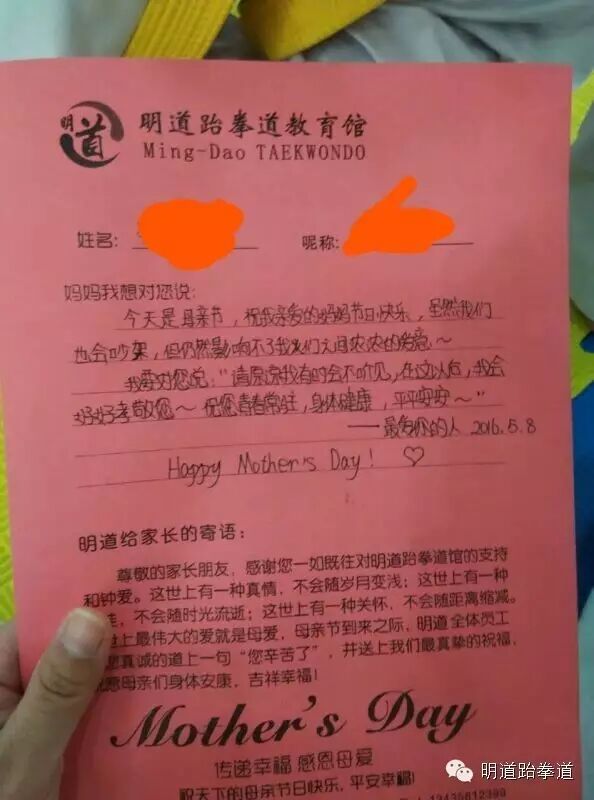 明道
明道跆拳道教育馆
Ming-Dao TAEKWONDO
姓名: 昵称:
妈妈我想对您说:
今天是母亲节，祝我亲爱的妈妈节日快乐，虽然我们
也会吵架，但仍然影响不了我们之间浓浓的爱意~
我要对您说："请原谅我有时会不听见，在这以后，我会
好好孝敬您~ 祝您青春常驻，身体健康，平平安安~"
——最爱你的人 2016.5.8
Happy Mother's Day! ♡
明道给家长的寄语:
尊敬的家长朋友，感谢您一如既往对明道跆拳道馆的支持
和钟爱。这世上有一种真情，不会随岁月变浅；这世上有一种
走，不会随时光流逝；这世上有一种关怀，不会随距离缩减。
世上最伟大的爱就是母爱，母亲节到来之际，明道全体员工
您真诚的道上一句“您辛苦了”，并送上我们最真挚的祝福，
愿母亲们身体安康，吉祥幸福！
Mother's Day
传递幸福 感恩母爱
祝天下的母亲节日快乐, 平安幸福!
明道跆拳道